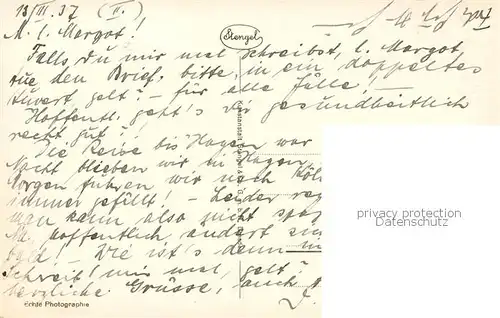 13/III. 37 (II.)
M. l. Margot!
Stengel
Falls Du mir mal schreibst, l. Margot,
tue den Brief, bitte, in ein doppeltes
Kuvert, gelt? – für alle Fälle. –
Hoffentl. geht's Dir gesundheitlich
recht gut?!
Die Reise bis Hagen war
Nacht blieben wir in Hagen
Morgen fuhren wir nach Köln
immer gefällt! – Leider reg
man kann also nicht spaz
Na, hoffentlich ändert sich
bald! – Wie ist's denn
Schreib' mir mal, gelt?
herzliche Grüsse, auch
Echte Photographie
privacy protection
Datenschutz